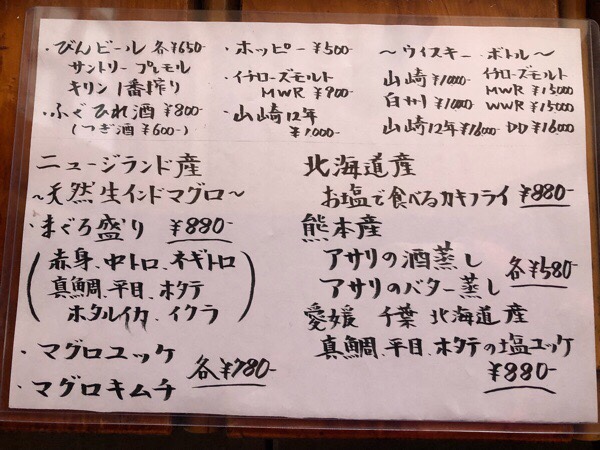 ・びんビール 各¥650-
サントリー プレモル
キリン 1番搾り
・ふぐひれ酒 ¥800-
(つぎ酒 ¥600-)
・ホッピー ¥500-
・イチローズモルト
MWR ¥900-
・山崎12年
¥1,000-
〜ウイスキー ボトル〜
山崎 ¥11000-
白州 ¥11000-
山崎12年 ¥16000-
イチローズモルト
MWR ¥15000
WWR ¥15000
DD ¥16000
ニュージランド産
〜天然生インドマグロ〜
・まぐろ盛り ¥880-
(赤身、中トロ、ネギトロ
真鯛、平目、ホタテ
ホタルイカ、イクラ)
・マグロユッケ
・マグロキムチ
各¥780-
北海道産
お塩で食べるカキフライ ¥880-
熊本産
アサリの酒蒸し
アサリのバター蒸し
各¥580-
愛媛 千葉 北海道産
真鯛、平目、ホタテの塩ユッケ
¥880-